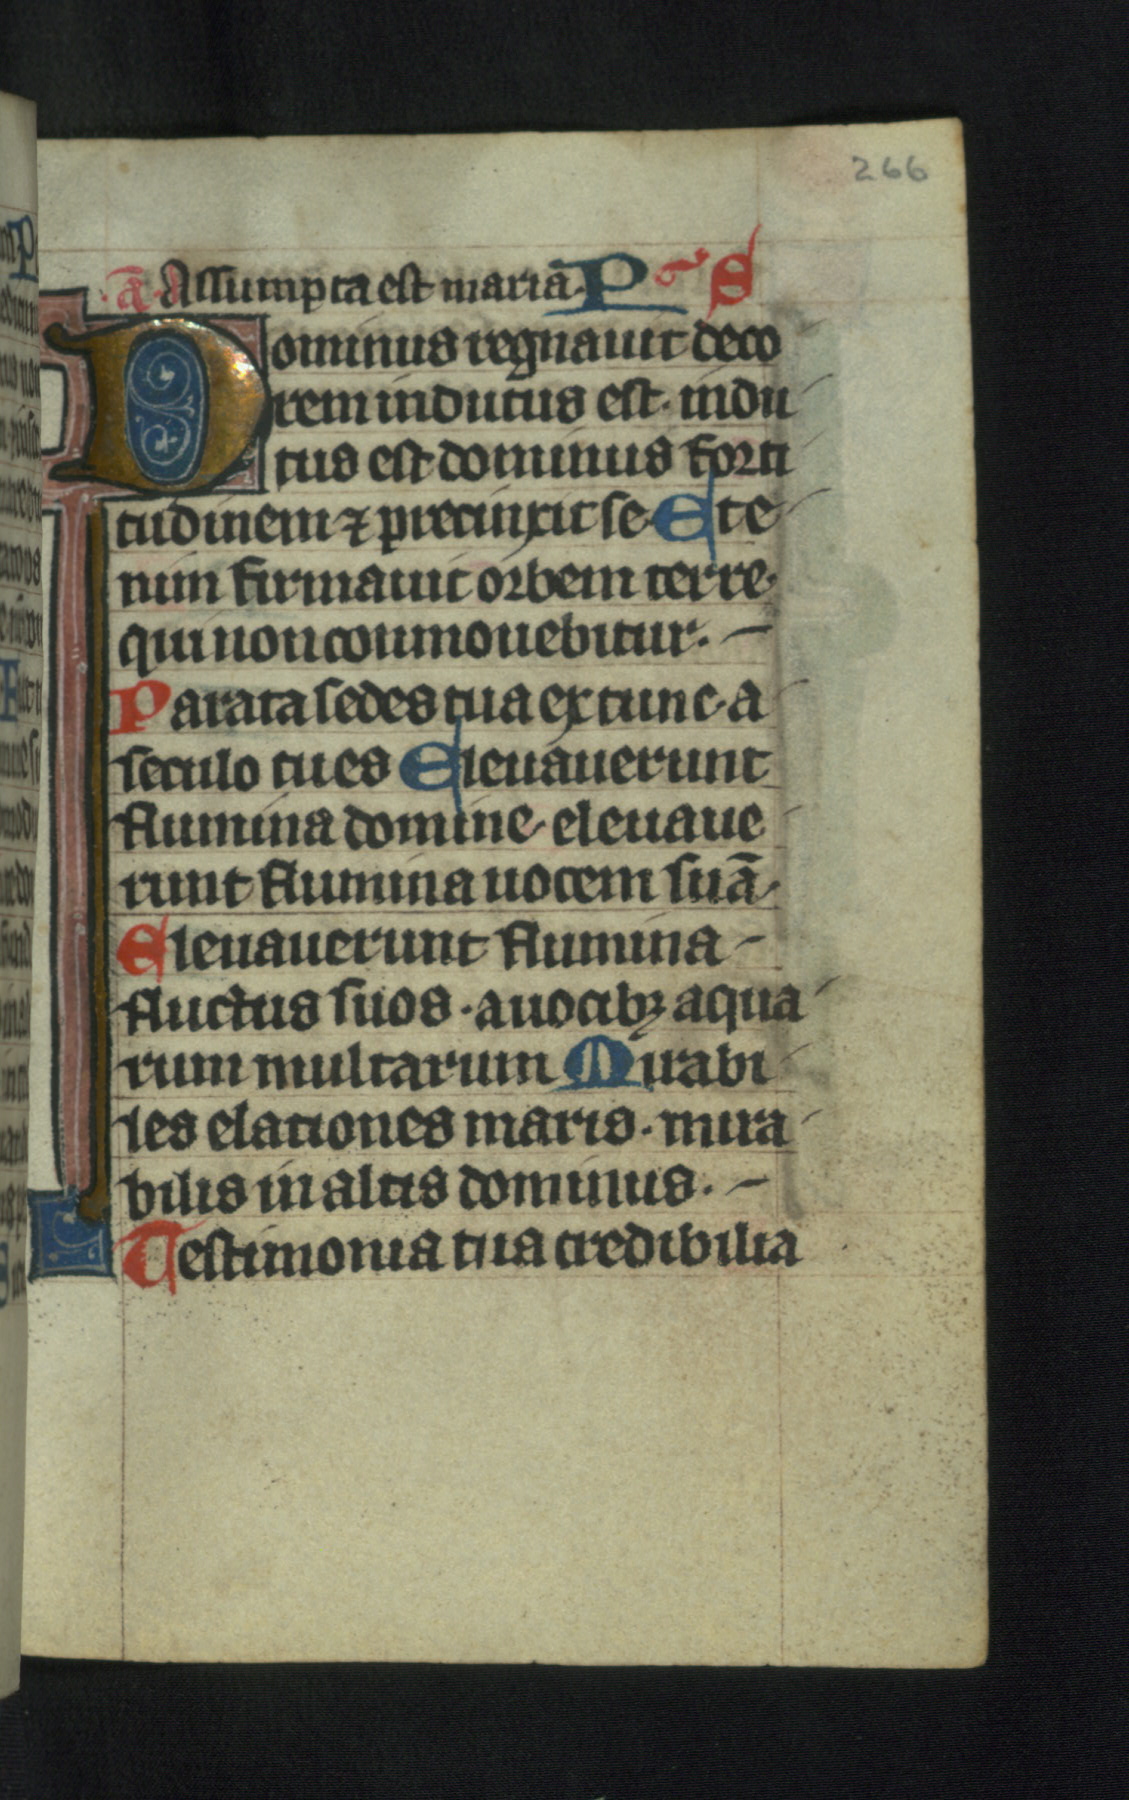 266
ā Assumpta est maria. Ps
Dominus regnauit deco
rem indutus est. indu
tus est dominus forti
tudinem ⁊ precinxit se Ete
nim firmauit orbem terre.
qui non commouebitur. –
Parata sedes tua ex tunc. a
seculo tu es Eleuauerunt
flumina domine. eleuaue
runt flumina uocem suā.
Eleuauerunt flumina –
fluctus suos. a uocibꝫ aqua
rum multarum Mirabi
les elationes maris. mira
bilis in altis dominus. –
Testimonia tua credibilia